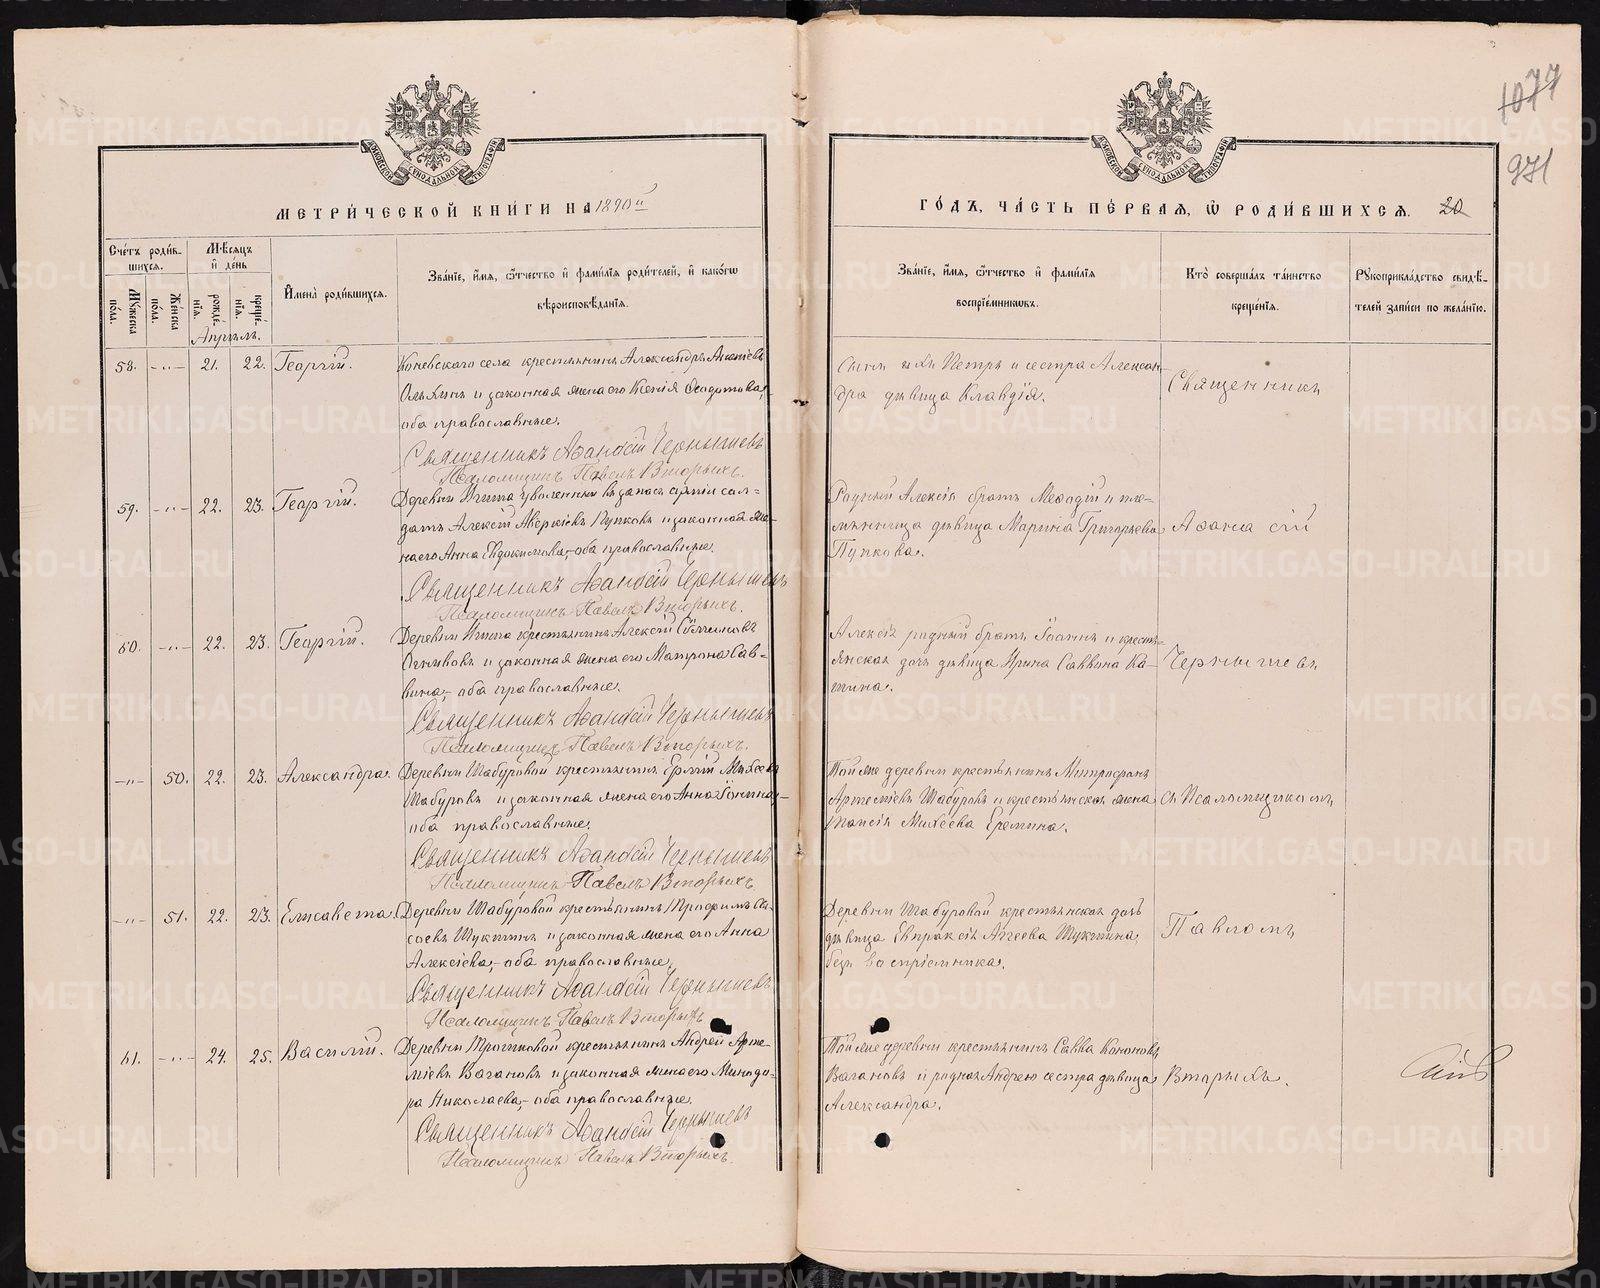 1077
971
МОСКОВСКОЙ СѴНОДАЛЬНОЙ ТИПОГРАФІИ
МОСКОВСКОЙ СѴНОДАЛЬНОЙ ТИПОГРАФІИ
МЕТРИ́ЧЕСКОЙ КНИ́ГИ НА 1890й
ГО́ДЪ, ЧА́СТЬ ПЕ́РВАЯ, Ѡ РОДИ́ВШИХСЯ. 20
Сче́тъ роди́в-
шихся.
Му́жеска по́ла.
Же́нска по́ла.
Мѣ́сяцъ
и҆ де́нь
рожде́нїя.
креще́нїя.
Апрѣль.
И҆мена̀ роди́вшихся.
Зва́нїе, и҆́мя, ѻ҆́тчество и҆ фами́лїя роди́телей, и҆ како́гѡ
вѣроисповѣ́данїя.
Зва́нїе, и҆́мя, ѻ҆́тчество и҆ фами́лїя
воспрїе́мникѡвъ.
Кто̀ соверша́лъ та́инство
креще́нїя.
Рꙋкоприкла́дство свидѣ́-
телей за́писи по жела́нїю.
58. -„- 21. 22. Георгій.
Коневскаго села крестьянинъ Александръ
и законная жена его Ксенія Ѳеодотова,
оба православные.
Священникъ Аѳанасій Чернышевъ
Псаломщикъ Павелъ Вторыхъ.
сынъ ихъ Петръ и сестра Алексан-
дра дѣвица Клавдія.
Священникъ
59. -„- 22. 23. Георгій.
Деревни уволенный въ запасъ арміи сол-
датъ Алексій Аверкіевъ Пупковъ и законная же-
на его Анна Евдокимова,- оба православные.
Священникъ Аѳанасій Чернышевъ
Псаломщикъ Павелъ Вторыхъ.
Родный Алексія братъ Меѳодій и пле-
мянница дѣвица Марина Григорьева
Пупкова.
Аѳанасій
60. -„- 22. 23. Георгій.
Деревни крестьянинъ Алексій
Огнивовъ и законная жена его Матрона Сав-
вина,- оба православные.
Священникъ Аѳанасій Чернышевъ
Псаломщикъ Павелъ Вторыхъ.
Алексія родный братъ Іоаннъ и кресть-
янская дочь дѣвица Ирина Саввина Ка-
тина.
Чернышевъ
-„- 50. 22. 23. Александра.
Деревни Шабуровой крестьянинъ Ермій Михеевъ
Шабуровъ и законная жена его Анна Іонина,-
оба православные.
Священникъ Аѳанасій Чернышевъ
Псаломщикъ Павелъ Вторыхъ.
Той же деревни крестьянинъ Митрофанъ
Артеміевъ Шабуровъ и крестьянская жена
Таисія Михеева Еремина.
съ Псаломщикомъ
-„- 51. 22. 23. Елисавета.
Деревни Шабуровой крестьянинъ Трофимъ Сы-
соевъ Щукинъ и законная жена его Анна
Алексіева,- оба православные.
Священникъ Аѳанасій Чернышевъ
Псаломщикъ Павелъ Вторыхъ
Деревни Шабуровой крестьянская дочь
дѣвица Евпраксія Аггеева Щукина,
безъ воспріемника.
Павломъ
61. -„- 24. 25. Василій.
Деревни крестьянинъ Андрей Арте-
міевъ Вагановъ и законная жена его Минодо-
ра Николаева,- оба православные.
Священникъ Аѳанасій Чернышевъ
Псаломщикъ Павелъ Вторыхъ.
Той же деревни крестьянинъ Савва Кононовъ
Вагановъ и родная Андрею сестра дѣвица
Александра.
Вторыхъ.
METRIKI.GASO-URAL.RU